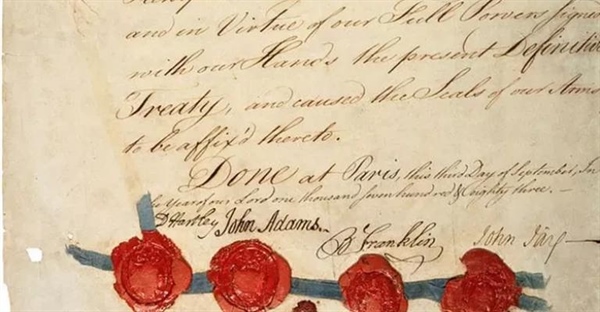 and in Virtue of our Full Powers signed
with our Hands the present Definitive
Treaty, and caused the Seals of our Arms
to be affix'd thereto.
Done at Paris, this third Day of September, In
Year of our Lord one thousand seven hundred & eighty three. —
D Hartley John Adams. B Franklin John Jay —